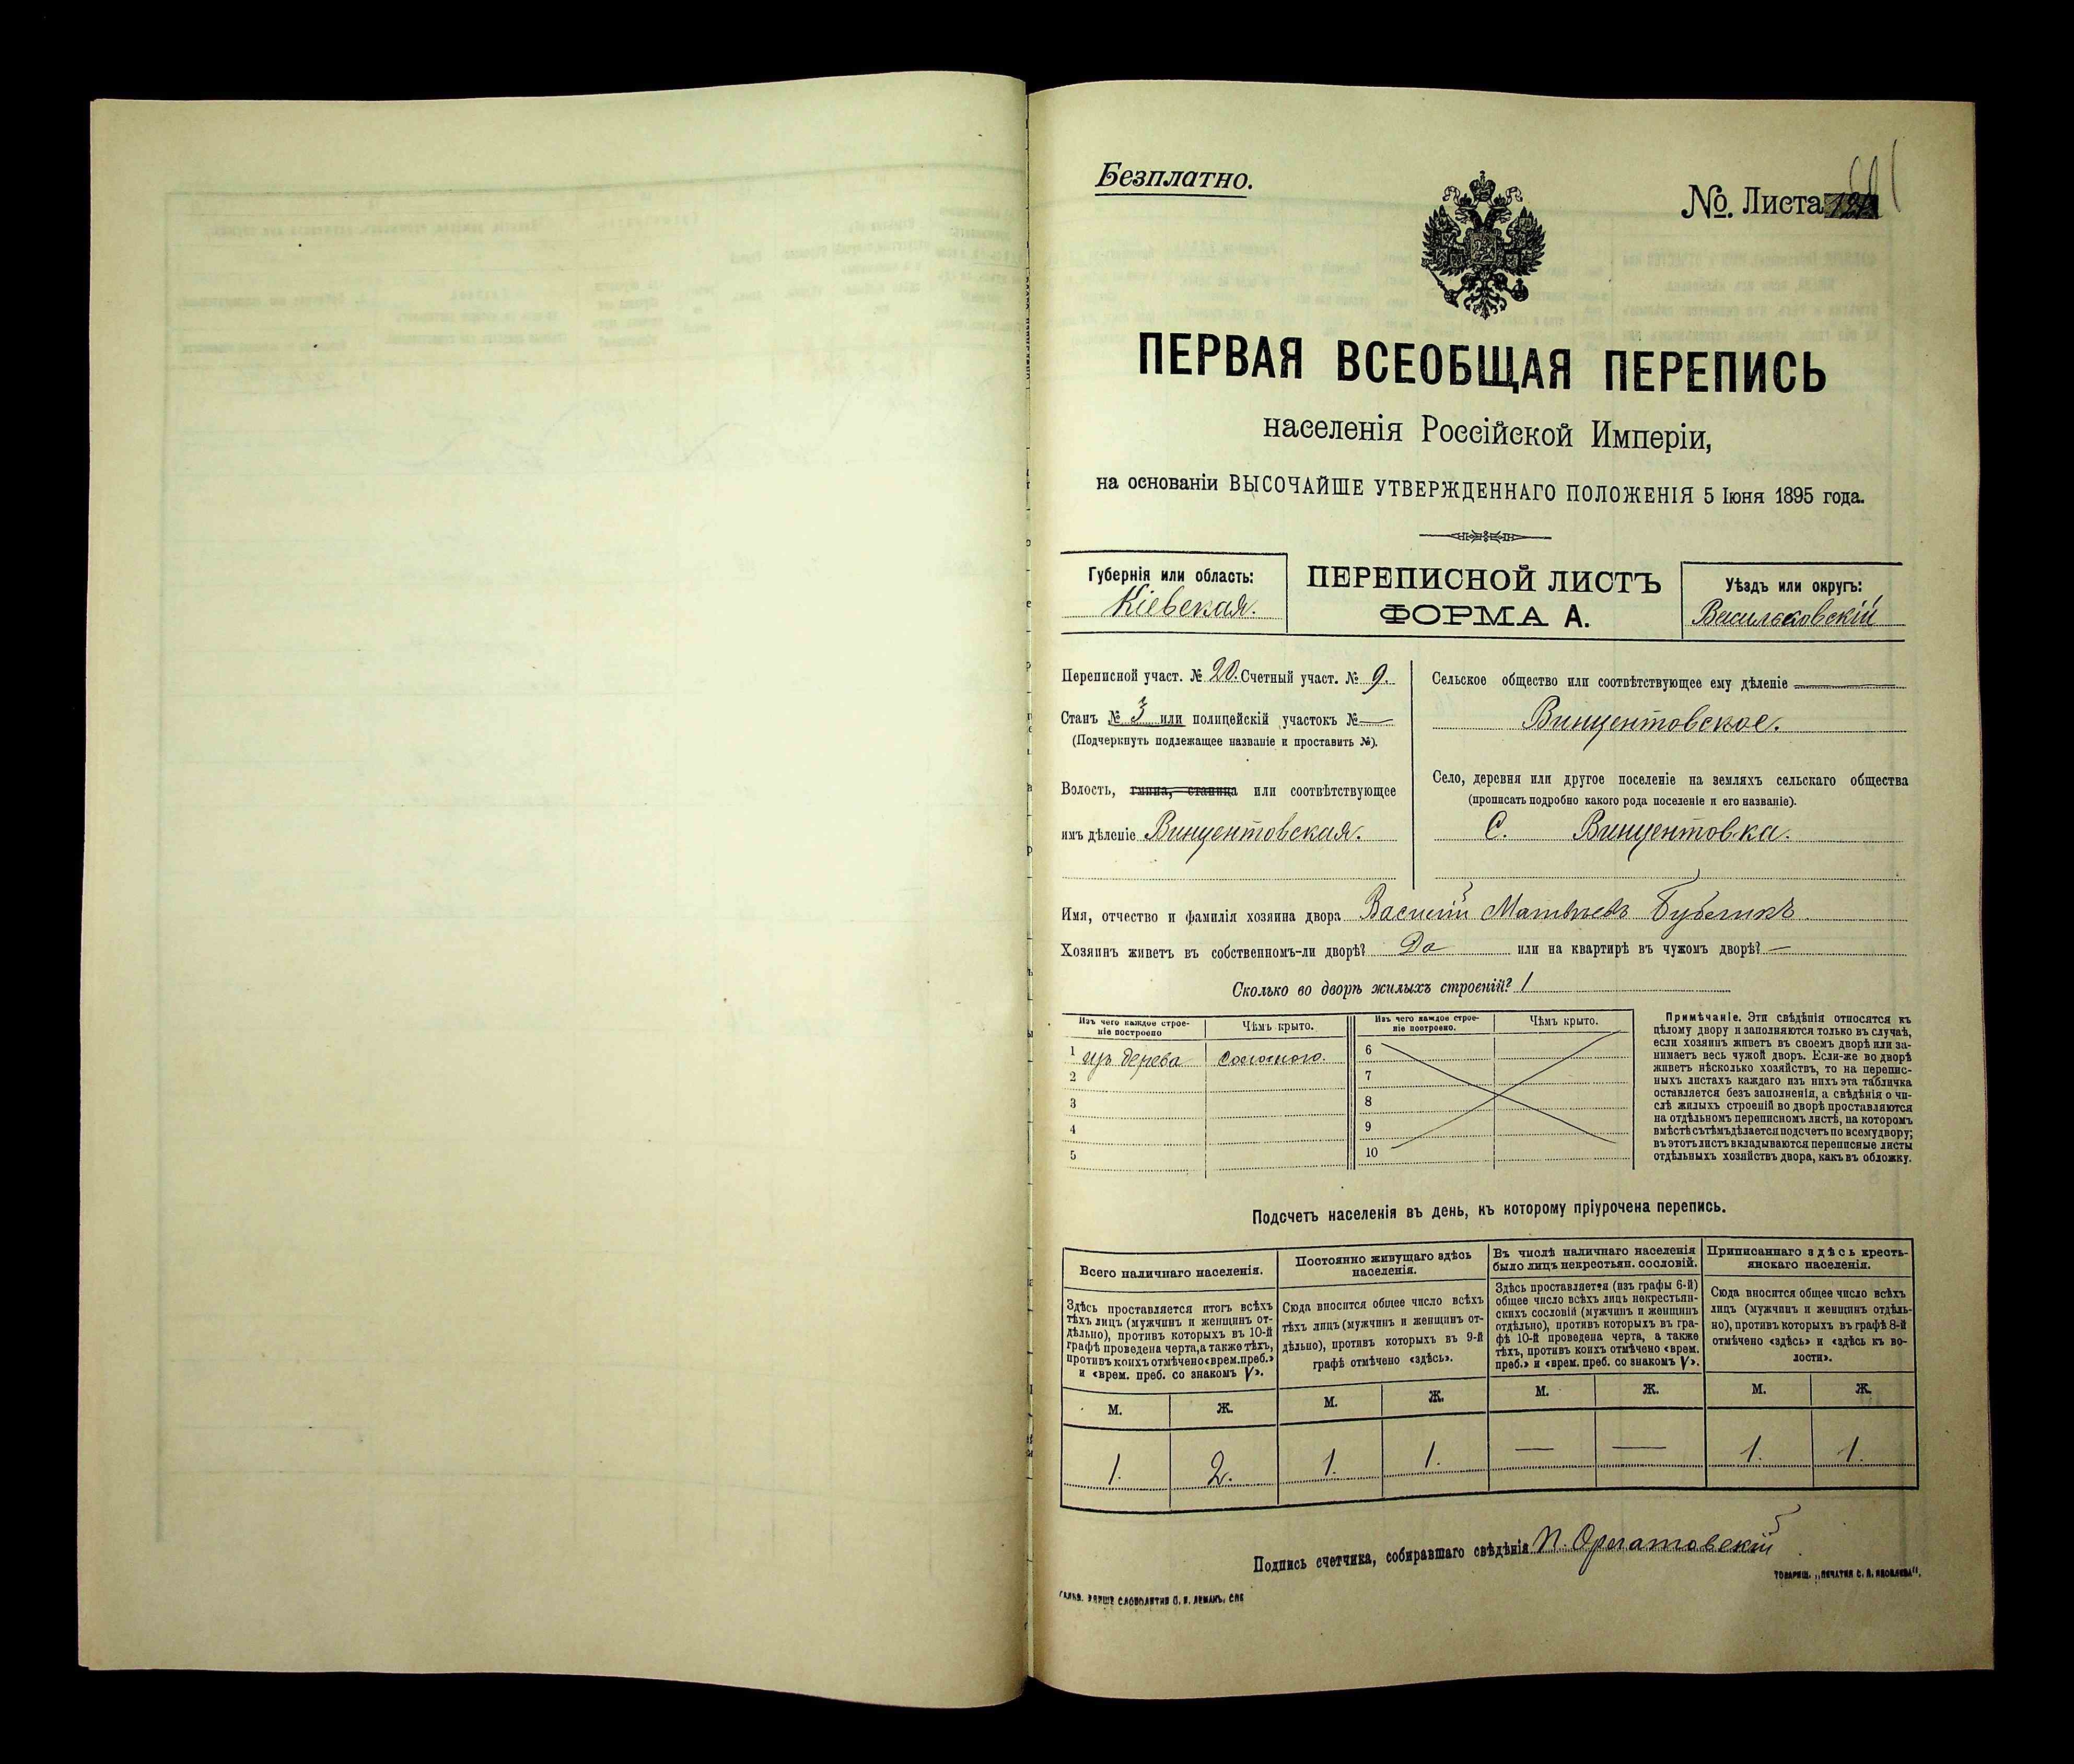 Безплатно.
№. Листа
ПЕРВАЯ ВСЕОБЩАЯ ПЕРЕПИСЬ
населенія Россійской Имперіи,
на основаніи ВЫСОЧАЙШЕ УТВЕРЖДЕННАГО ПОЛОЖЕНІЯ 5 Іюня 1895 года.
Губернія или область:
Кіевская.
ПЕРЕПИСНОЙ ЛИСТЪ
ФОРМА А.
Уѣздъ или округъ:
Васильковскій
Переписной участ. № 20. Счетный участ. № 9.
Станъ № 3 или полицейскій участокъ № —
(Подчеркнуть подлежащее названіе и проставить №).
Волость, гмина, станица или соотвѣтствующее
имъ дѣленіе Винцентовская.
Сельское общество или соотвѣтствующее ему дѣленіе
Винцентовское.
Село, деревня или другое поселеніе на земляхъ сельскаго общества
(прописать подробно какого рода поселеніе и его названіе).
С. Винцентовка.
Имя, отчество и фамилія хозяина двора Василій Матвѣевъ Бубликъ.
Хозяинъ живетъ въ собственномъ-ли дворѣ? Да или на квартирѣ въ чужомъ дворѣ? —
Сколько во дворѣ жилыхъ строеній? 1
Изъ чего каждое строе-
ніе построено
Чѣмъ крыто.
1 изъ дерева соломою
2
3
4
5
Изъ чего каждое строе-
ніе построено.
Чѣмъ крыто.
6
7
8
9
10
Примѣчаніе. Эти свѣдѣнія относятся къ
цѣлому двору и заполняются только въ случаѣ,
если хозяинъ живетъ въ своемъ дворѣ или за-
нимаетъ весь чужой дворъ. Если-же во дворѣ
живетъ нѣсколько хозяйствъ, то на перепис-
ныхъ листахъ каждаго изъ нихъ эта табличка
оставляется безъ заполненія, а свѣдѣнія о чи-
слѣ жилыхъ строеній во дворѣ проставляются
на отдѣльномъ переписномъ листѣ, на которомъ
вмѣстѣ съ тѣмъ дѣлается подсчетъ по всему двору;
въ этотъ листъ вкладываются переписные листы
отдѣльныхъ хозяйствъ двора, какъ въ обложку.
Подсчетъ населенія въ день, къ которому пріурочена перепись.
Всего наличнаго населенія.
Здѣсь проставляется итогъ всѣхъ
тѣхъ лицъ (мужчинъ и женщинъ от-
дѣльно), противъ которыхъ въ 10-й
графѣ проведена черта, а также тѣхъ,
противъ коихъ отмѣчено «врем. преб.»
и «врем. преб. со знакомъ V».
М. Ж.
1. 2.
Постоянно живущаго здѣсь
населенія.
Сюда вносится общее число всѣхъ
тѣхъ лицъ (мужчинъ и женщинъ от-
дѣльно), противъ которыхъ въ 9-й
графѣ отмѣчено «здѣсь».
М. Ж.
1. 1.
Въ числѣ наличнаго населенія
было лицъ некрестьян. сословій.
Здѣсь проставляется (изъ графы 6-й)
общее число всѣхъ лицъ некрестьян-
скихъ сословій (мужчинъ и женщинъ
отдѣльно), противъ которыхъ въ гра-
фѣ 10-й проведена черта, а также
тѣхъ, противъ коихъ отмѣчено «врем.
преб.» и «врем. преб. со знакомъ V».
М. Ж.
— —
Приписаннаго здѣсь кресть-
янскаго населенія.
Сюда вносится общее число всѣхъ
лицъ (мужчинъ и женщинъ отдѣль-
но), противъ которыхъ въ графѣ 8-й
отмѣчено «здѣсь» и «здѣсь къ во-
лости».
М. Ж.
1. 1.
Подпись счетчика, собиравшаго свѣдѣнія П.
ТОВАРИЩ. „ПЕЧАТНЯ С. П. ЯКОВЛЕВА".
СЛОВОЛИТНЯ О. И. ЛЕМАНЪ, СПБ